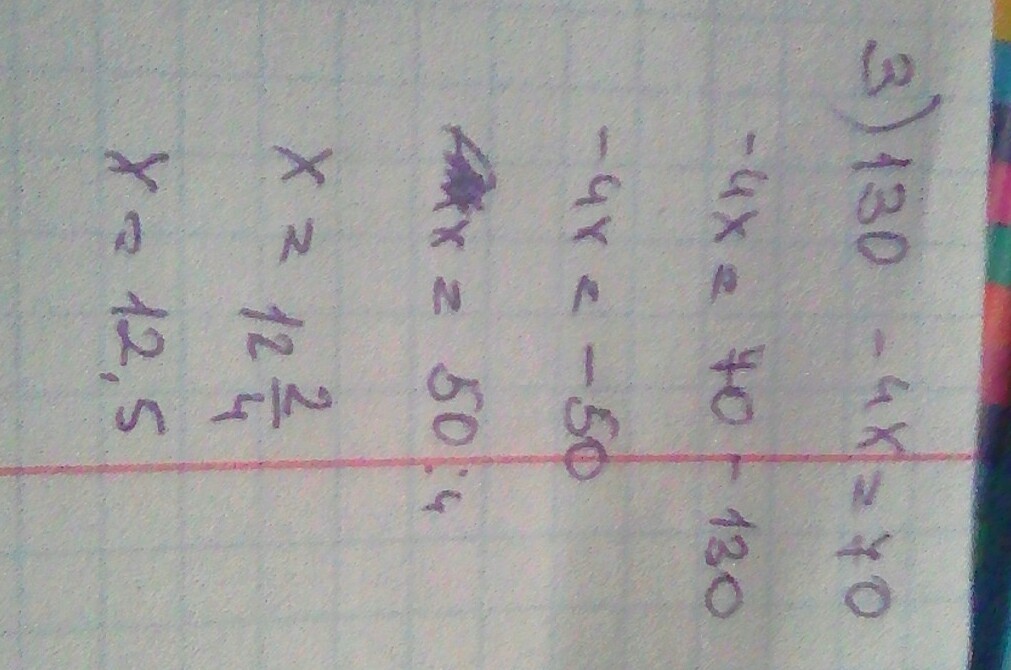 3) 130 - 4x = 70
- 4x = 70 - 130
- 4x = - 50
x = 50 : 4
x = 12 2/4
x = 12,5